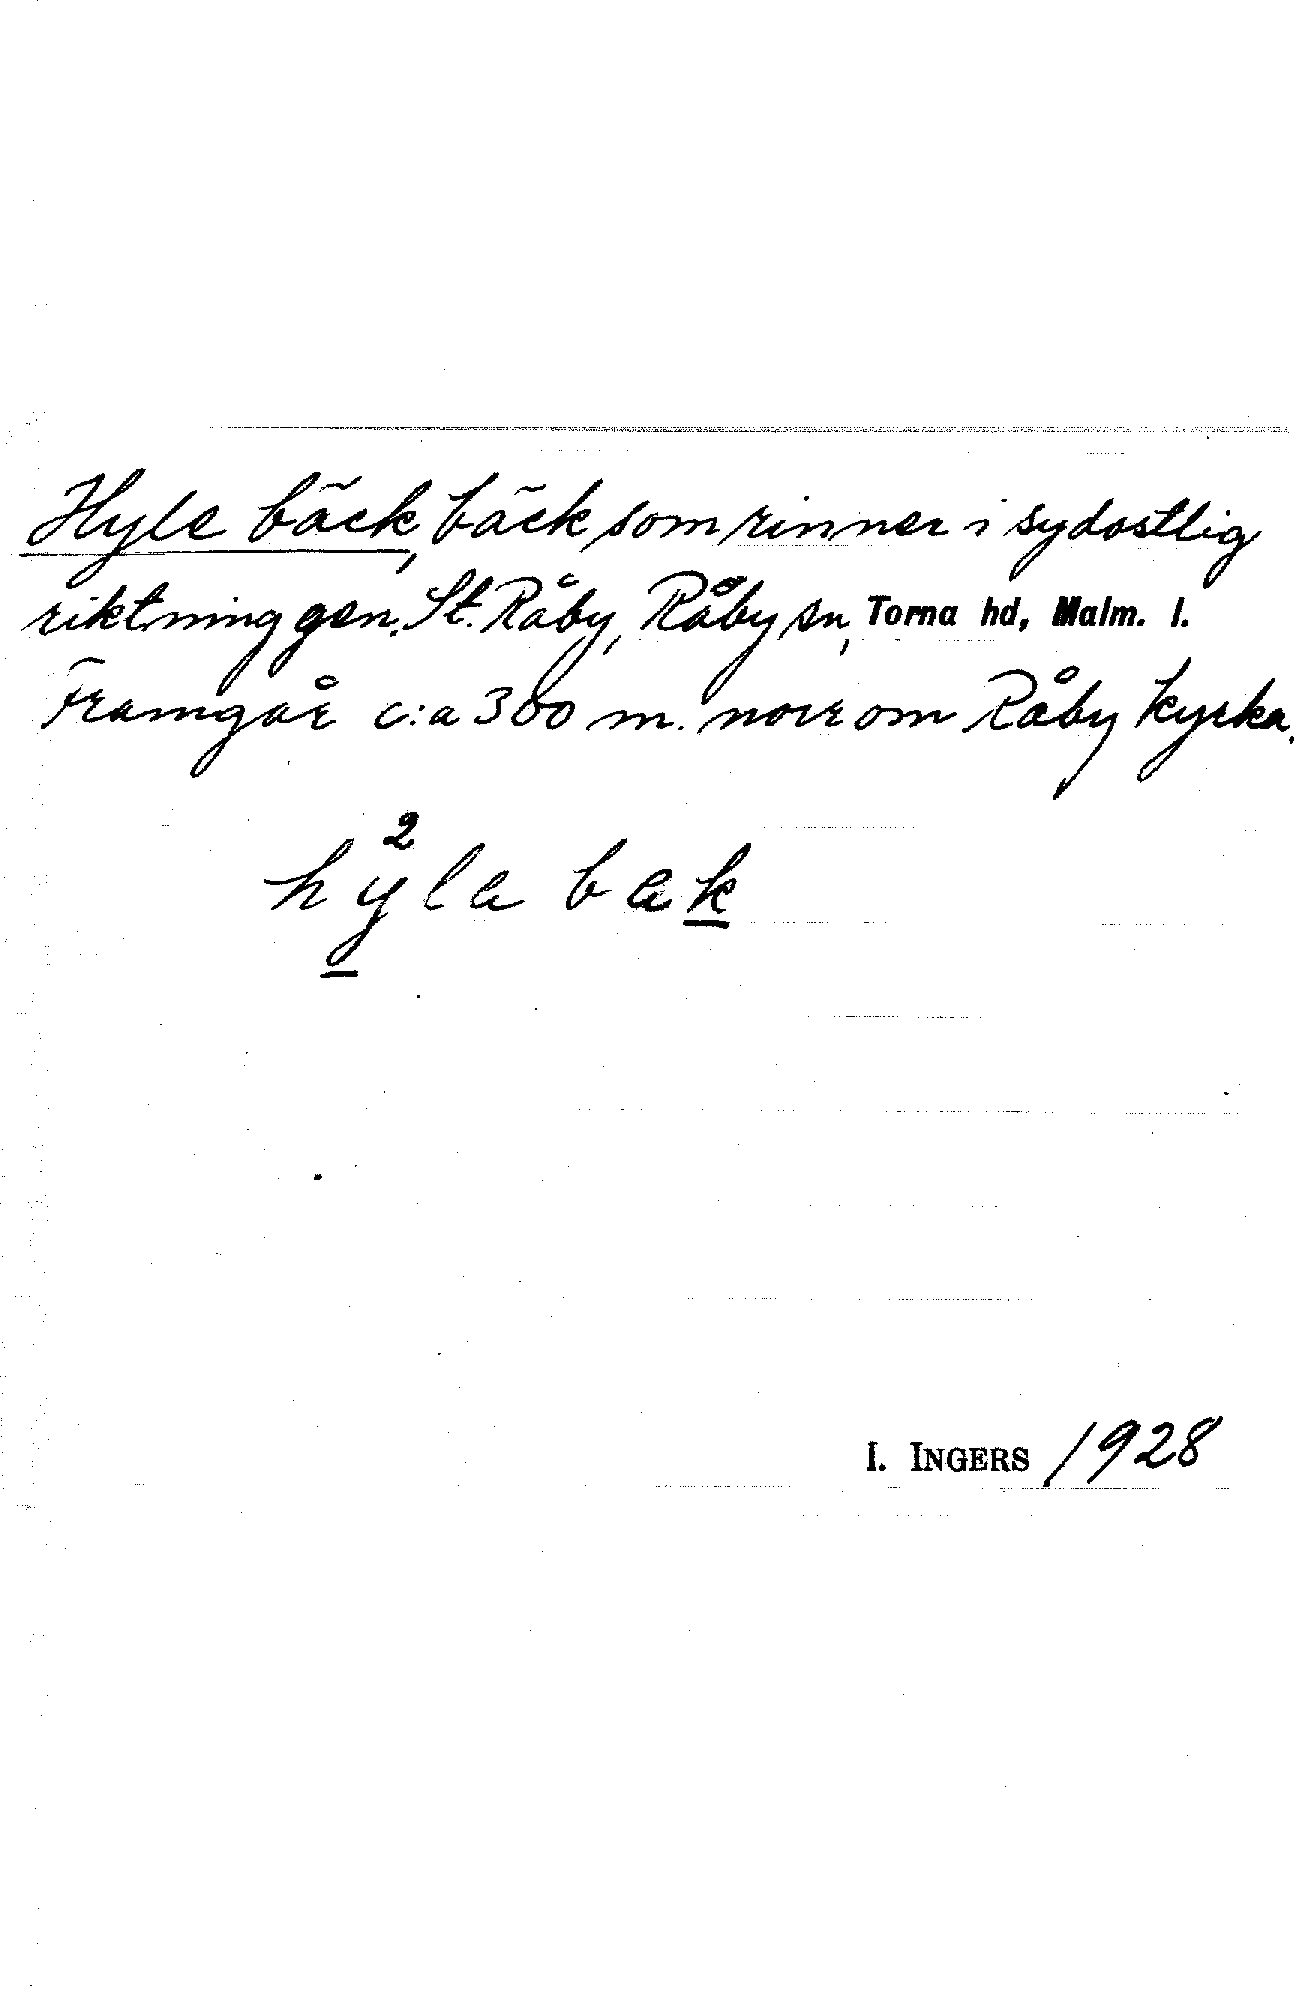 Hyle bäck, bäck som rinner i sydostlig
riktning gen. St. Råby, Råby sn, Torna hd, Malm. l.
Framgår c:a 300 m. norr om Råby kyrka.
2
hyla bak
I. INGERS /1928